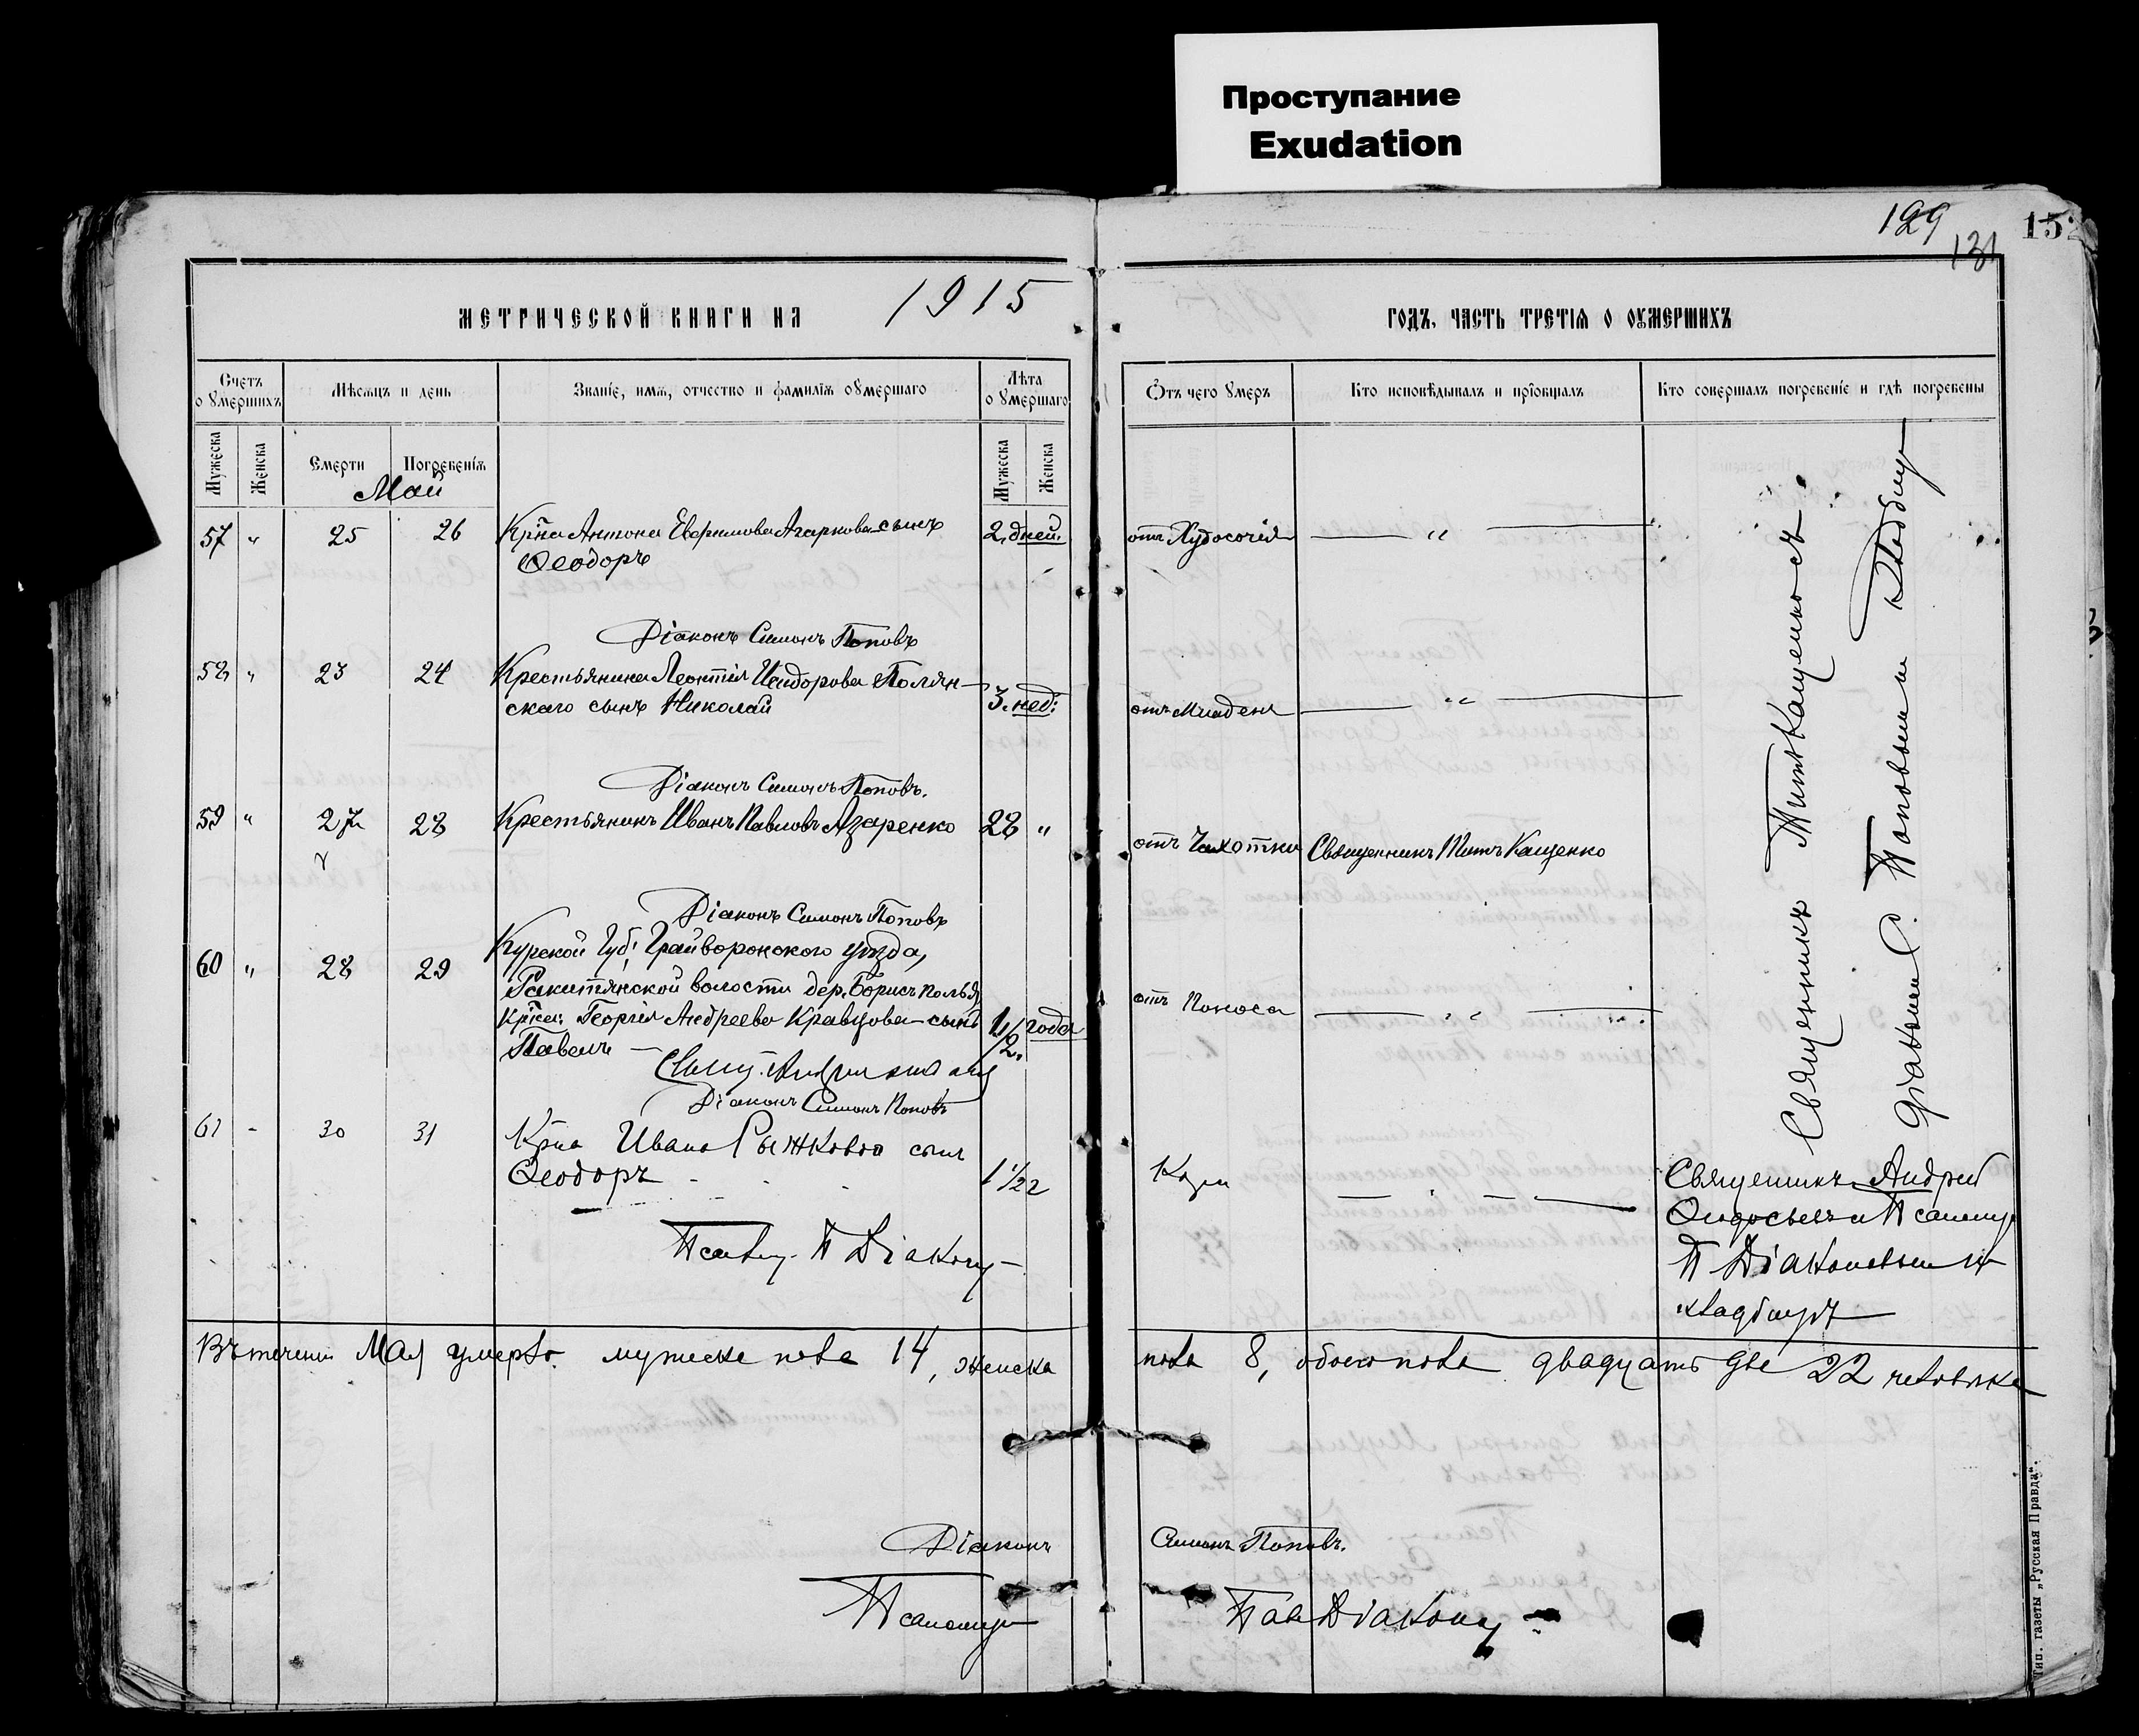 Проступание
Exudation
129
131
15
МЕТРИЧЕСКОЙ КНИГИ НА 1915
ГОДЪ, ЧАСТЬ ТРЕТІѦ О ОУМЕРШИХЪ
Счетъ оумершихъ
Мѣсяцъ и день
Званіе, имя, отчество и фамилія оумершаго
Лѣта оумершаго
Ѿтъ чего умеръ
Кто исповѣдывалъ и пріобщалъ
Кто совершалъ погребеніе и гдѣ погребены
Мужеска
Женска
Смерти
Погребенія
Мужеска
Женска
Май
57 " 25 26 Крѣна Антона Евфимова Агаркова сынъ 2. дней. отъ Худосочія "
Ѳеодоръ
Діаконъ Симонъ Поповъ
58 " 23 24 Крестьянина Леонтія Исидорова Полян-
скаго сынъ Николай 3. нед: отъ Младен "
Діаконъ Симонъ Поповъ.
59 " 27 28 Крестьянинъ Иванъ Павловъ Азаренко 28 " отъ Чахотки Священникъ Титъ Кащенко
Діаконъ Симонъ Поповъ
60 " 28 29 Курской Губ. Грайворонского уѣзда,
Ракитянской волости дер. Борисполья
Крѣна Георгія Андреева Кравцова сынъ 1/2 года отъ Поноса "
Павелъ —
Діаконъ Симонъ Поповъ
61 - 30 31 Крѣна Ивана Рыжкова сынъ
Ѳеодоръ 1 1/2 г
Псаломщ. П Діаконц
Священникъ Титъ Кащенко съ
діакономъ С. Поповымъ
Священникъ Андрей
Ѳеодосьевъ и Псаломщ
П Діаконовымъ
кладбищѣ
Въ теченіи Мая умерло. мужеска пола 14, женска
пола 8, обоего пола двадцать две 22 человека
Діаконъ Симонъ Поповъ.
Псаломщ
Тип. газеты „Русская Правда“.